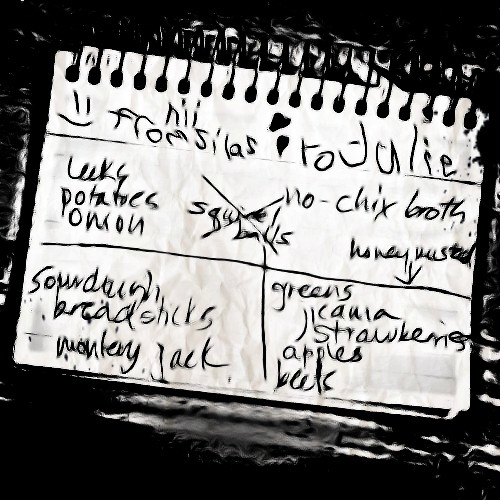 hii
from Silas
to Julie
leeks
potatoes
onion
no-chix broth
honey musted
sourdough
breadsticks
monterey jack
greens
jicama
strawberries
apples
beets